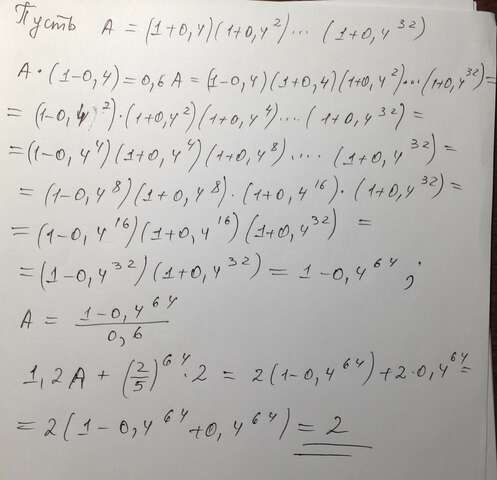 Пусть A = (1+0,4)(1+0,4²)... (1+0,4³²)
A·(1-0,4)=0,6A=(1-0,4)(1+0,4)(1+0,4²)...(1+0,4³²)=
=(1-0,4²)·(1+0,4²)(1+0,4⁴)....(1+0,4³²)=
=(1-0,4⁴)(1+0,4⁴)(1+0,4⁸).....(1+0,4³²)=
=(1-0,4⁸)(1+0,4⁸)·(1+0,4¹⁶)·(1+0,4³²)=
=(1-0,4¹⁶)(1+0,4¹⁶)(1+0,4³²) =
=(1-0,4³²)(1+0,4³²)=1-0,4⁶⁴;
A = \frac{1-0,4⁶⁴}{0,6}
1,2A+(\frac{2}{5})⁶⁴·2 = 2(1-0,4⁶⁴)+2·0,4⁶⁴=
=2(1-0,4⁶⁴+0,4⁶⁴)=2